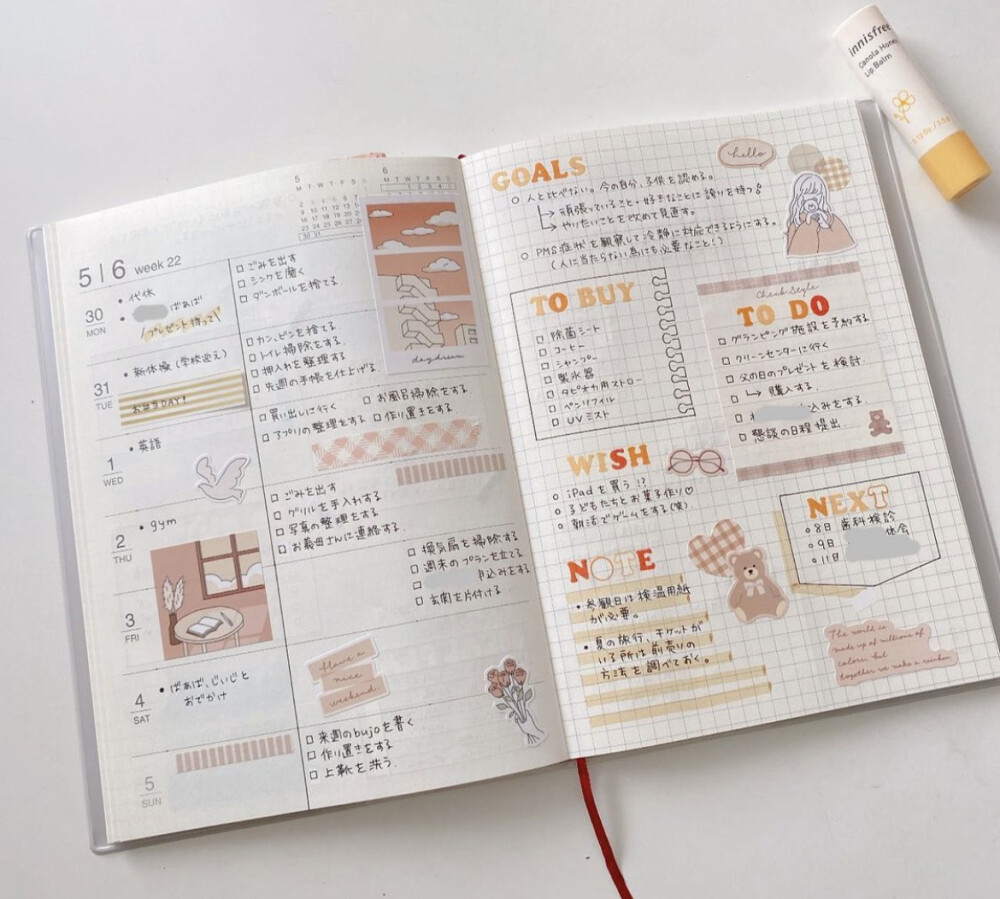 5
6
5 | 6 week 22
30
MON
• 代休
• ばぁば
プレゼント持って
□ ごみを出す
□ シンクを磨く
□ ダンボールを捨てる
daydream
31
TUE
• 新体操（学校迎え）
お弁当DAY!
□ カン、ビンを捨てる
□ トイレ掃除をする
□ 押入れを整理する
□ 先週の手帳を仕上げる
1
WED
• 英語
□ 買い出しに行く
□ お風呂掃除をする
□ アプリの整理をする
□ 作り置きをする
2
THU
• gym
□ ごみを出す
□ グリルを手入れする
□ 写真の整理をする
□ お義母さんに連絡する
3
FRI
□ 換気扇を掃除する
□ 週末のプランを立てる
□ 込みをする
□ 玄関を片付ける
4
SAT
• ばぁば、じぃじと
おでかけ
Have a
nice
weekend.
5
SUN
□ 来週のbujoを書く
□ 作り置きをする
□ 上靴を洗う
GOALS
○ 人と比べない。今の自分、子供を認める。
↳ 頑張っていること・好きなことに誇りを持つ!
↳ やりたいことを改めて見直す。
○ PMS症状を観察して冷静に対応できるようにする。
(人に当たらない為にも必要なこと!)
hello
TO BUY
□ 除菌シート
□ コーヒー
□ シャンプー
□ 製氷器
□ タピオカ用ストロー
□ ペンリフィル
□ UVミスト
Check Style
TO DO
□ グランピング施設を予約する
□ クリーンセンターに行く
□ 父の日のプレゼントを検討
□ ↳ 購入する
□ 込みをする
□ 懇談の日程提出
WISH
○ iPadを買う!?
○ 子どもたちとお菓子作り♡
○ 朝活でゲームをする(笑)
NEXT
○ 8日 歯科検診
○ 9日 休会
○ 11日
NOTE
• 参観日は検温用紙
が必要。
• 夏の旅行、チケットが
いる所は前売りの
方法を調べておく。
The world is
made up of millions of
colors, but
together we make a rainbow
innisfree
Canola Honey
Lip Balm